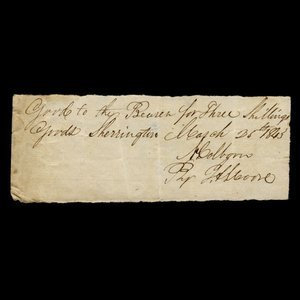 Good to the Bearer for Three Shillings
Goods Sherrington March 25th 1845
Colborn
Per Moore